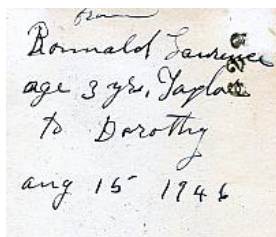 from
Ronnald Laurence
age 3 yrs, Taylor
to Dorothy
aug 15 1946